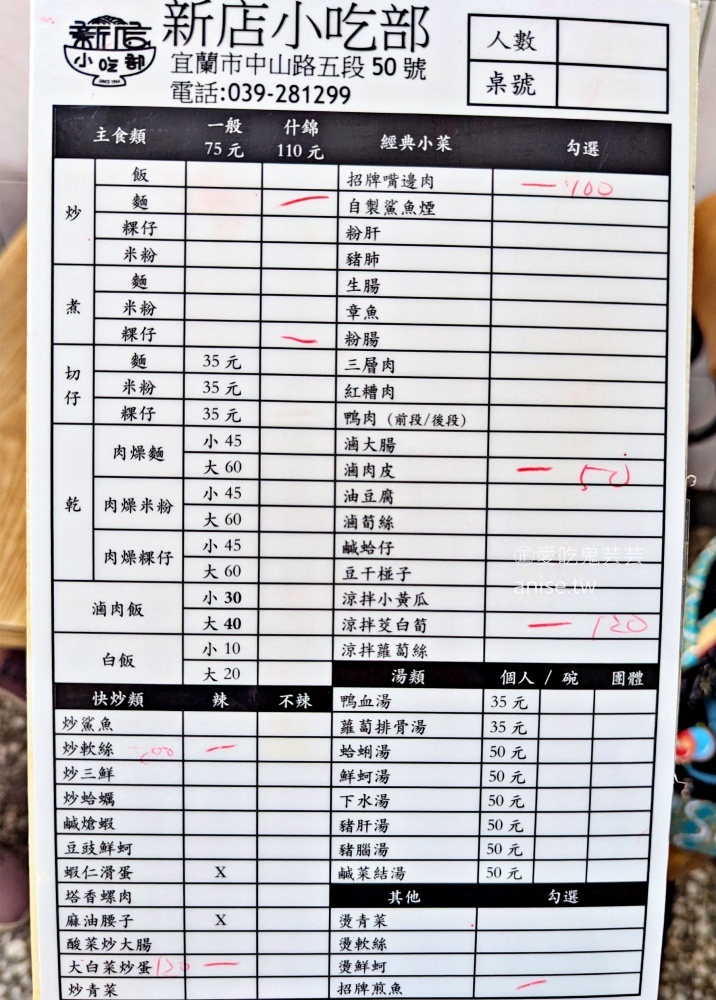 新店小吃部
新店
小吃部
SINCE 1954
宜蘭市中山路五段 50 號
電話:039-281299
人數
桌號
主食類 一般 75 元 什錦 110 元
炒
飯
麵 一
粿仔
米粉
煮
麵
米粉
粿仔 一
切仔
麵 35 元
米粉 35 元
粿仔 35 元
乾
肉燥麵 小 45
大 60
肉燥米粉 小 45
大 60
肉燥粿仔 小 45
大 60
滷肉飯 小 30
大 40
白飯 小 10
大 20
快炒類 辣 不辣
炒鯊魚
炒軟絲 一
炒三鮮
炒蛤蠣
鹹熗蝦
豆豉鮮蚵
蝦仁滑蛋 X
塔香螺肉
麻油腰子 X
酸菜炒大腸
大白菜炒蛋 130 一
炒青菜
經典小菜 勾選
招牌嘴邊肉 一 100
自製鯊魚煙
粉肝
豬肺
生腸
章魚
粉腸
三層肉
紅糟肉
鴨肉 (前段/後段)
滷大腸
滷肉皮 一 50
油豆腐
滷筍絲
鹹蛤仔
豆干椪子
涼拌小黃瓜
涼拌茭白筍 一 120
涼拌蘿蔔絲
湯類 個人 / 碗 團體
鴨血湯 35 元
蘿蔔排骨湯 35 元
蛤蜊湯 50 元
鮮蚵湯 50 元
下水湯 50 元
豬肝湯 50 元
豬腦湯 50 元
鹹菜結湯 50 元
其他 勾選
燙青菜
燙軟絲
燙鮮蚵
招牌煎魚 一
愛吃鬼芸芸
anise.tw